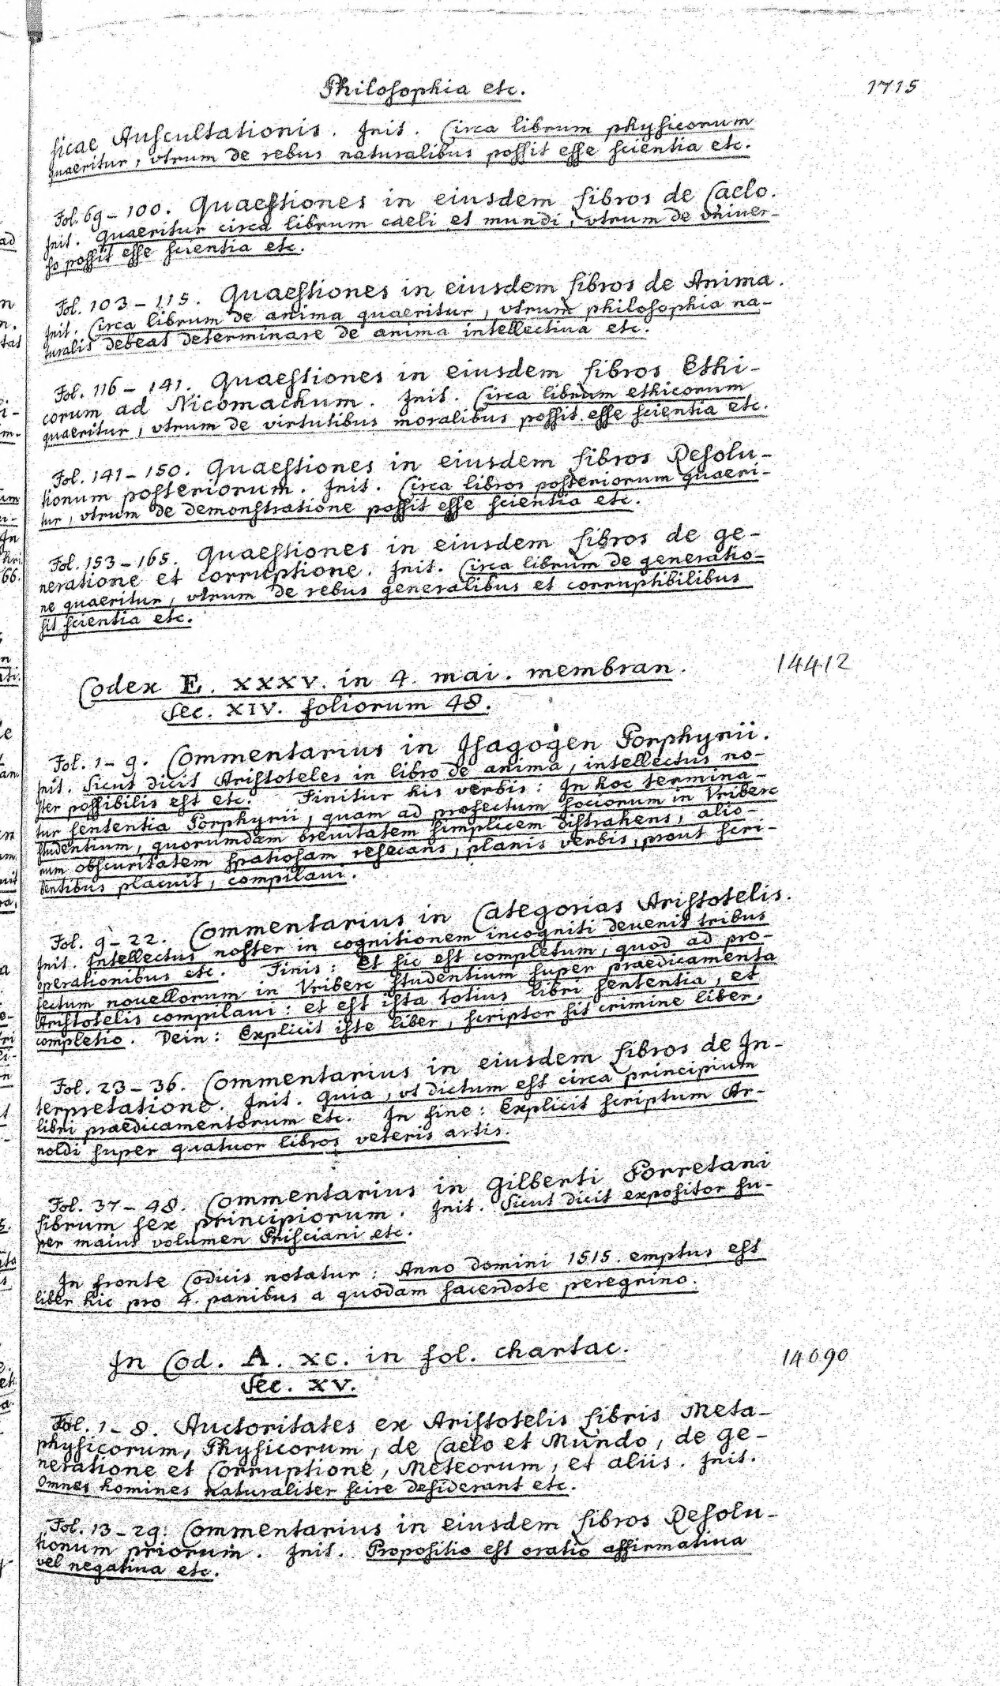 Philosophia etc.
1715
sicae Auscultationis. Init. Circa librum physicorum
quaeritur, vtrum de rebus naturalibus possit esse scientia etc.
Fol. 69-100. Quaestiones in eiusdem libros de Caelo.
Init. Quaeritur circa librum caeli et mundi, vtrum de vniver-
so possit esse scientia etc.
Fol. 103-115. Quaestiones in eiusdem libros de Anima.
Init. Circa librum de anima quaeritur, vtrum philosophia na-
turalis debeat determinare de anima intellectiua etc.
Fol. 116-141. Quaestiones in eiusdem libros Ethi-
corum ad Nicomachum. Init. Circa librum ethicorum
quaeritur, vtrum de virtutibus moralibus possit esse scientia etc.
Fol. 141-150. Quaestiones in eiusdem libros Resolu-
tionum posteriorum. Init. Circa libros posteriorum quaeri-
tur, vtrum de demonstratione possit esse scientia etc.
Fol. 153-165. Quaestiones in eiusdem libros de ge-
neratione et corruptione. Init. Circa librum de generatio-
ne quaeritur, vtrum de rebus generalibus et corruptibilibus
sit scientia etc.
Codex E. XXXV. in 4. mai. membran.
14412
Sec. XIV. foliorum 48.
Fol. 1-9. Commentarius in Isagogen Porphyrii.
Init. Sicut dicit Aristoteles in libro de anima, intellectus no-
ster possibilis est etc. Finitur his verbis: In hoc termina-
tur sententia Porphyrii, quam ad profectum sociorum in Vriberc
studentium, quorumdam breuitatem simplicem distrahens, alio-
rum obscuritatem spatiosam resecans, planis verbis, prout scri-
bentibus placuit, compilaui.
Fol. 9-22. Commentarius in Categorias Aristotelis.
Init. Intellectus noster in cognitionem incogniti devenit tribus
operationibus etc. Finis: Et sic est completum, quod ad pro-
fectum nouellorum in Vriberc studentium super praedicamenta
Aristotelis compilaui: et est ista totius libri sententia, et
completio. Dein: Explicit iste liber, scriptor sit crimine liber.
Fol. 23-36. Commentarius in eiusdem libros de In-
terpretatione. Init. Quia, vt dictum est circa principium
libri praedicamentorum etc. In fine: Explicit scriptum Ar-
noldi super quatuor libros veteris artis.
Fol. 37-48. Commentarius in Gilberti Porretani
librum sex principiorum. Init. Sicut dicit expositor su-
per maius volumen Prisciani etc.
In fronte Codicis notatur: Anno domini 1515. emptus est
liber hic pro 4. panibus a quodam sacerdote peregrino.
In Cod. A. XC. in fol. chartac.
14690
Sec. XV.
Fol. 1-8. Auctoritates ex Aristotelis libris Meta-
physicorum, Physicorum, de Caelo et Mundo, de ge-
neratione et Corruptione, Meteorum, et aliis. Init.
Omnes homines naturaliter scire desiderant etc.
Fol. 13-29. Commentarius in eiusdem libros Resolu-
tionum priorum. Init. Propositio est oratio affirmatiua
vel negatiua etc.